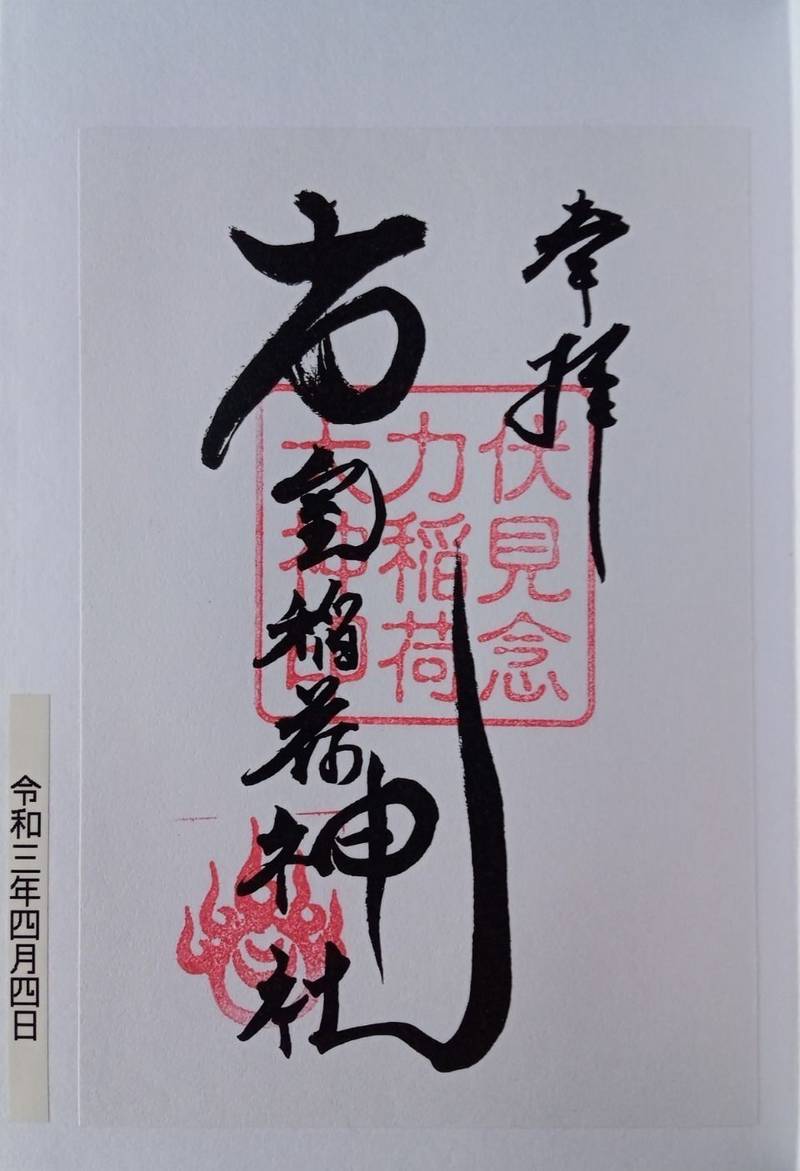 奉拝
稲荷神社
伏見念
力稲荷
大神印
令和三年四月四日